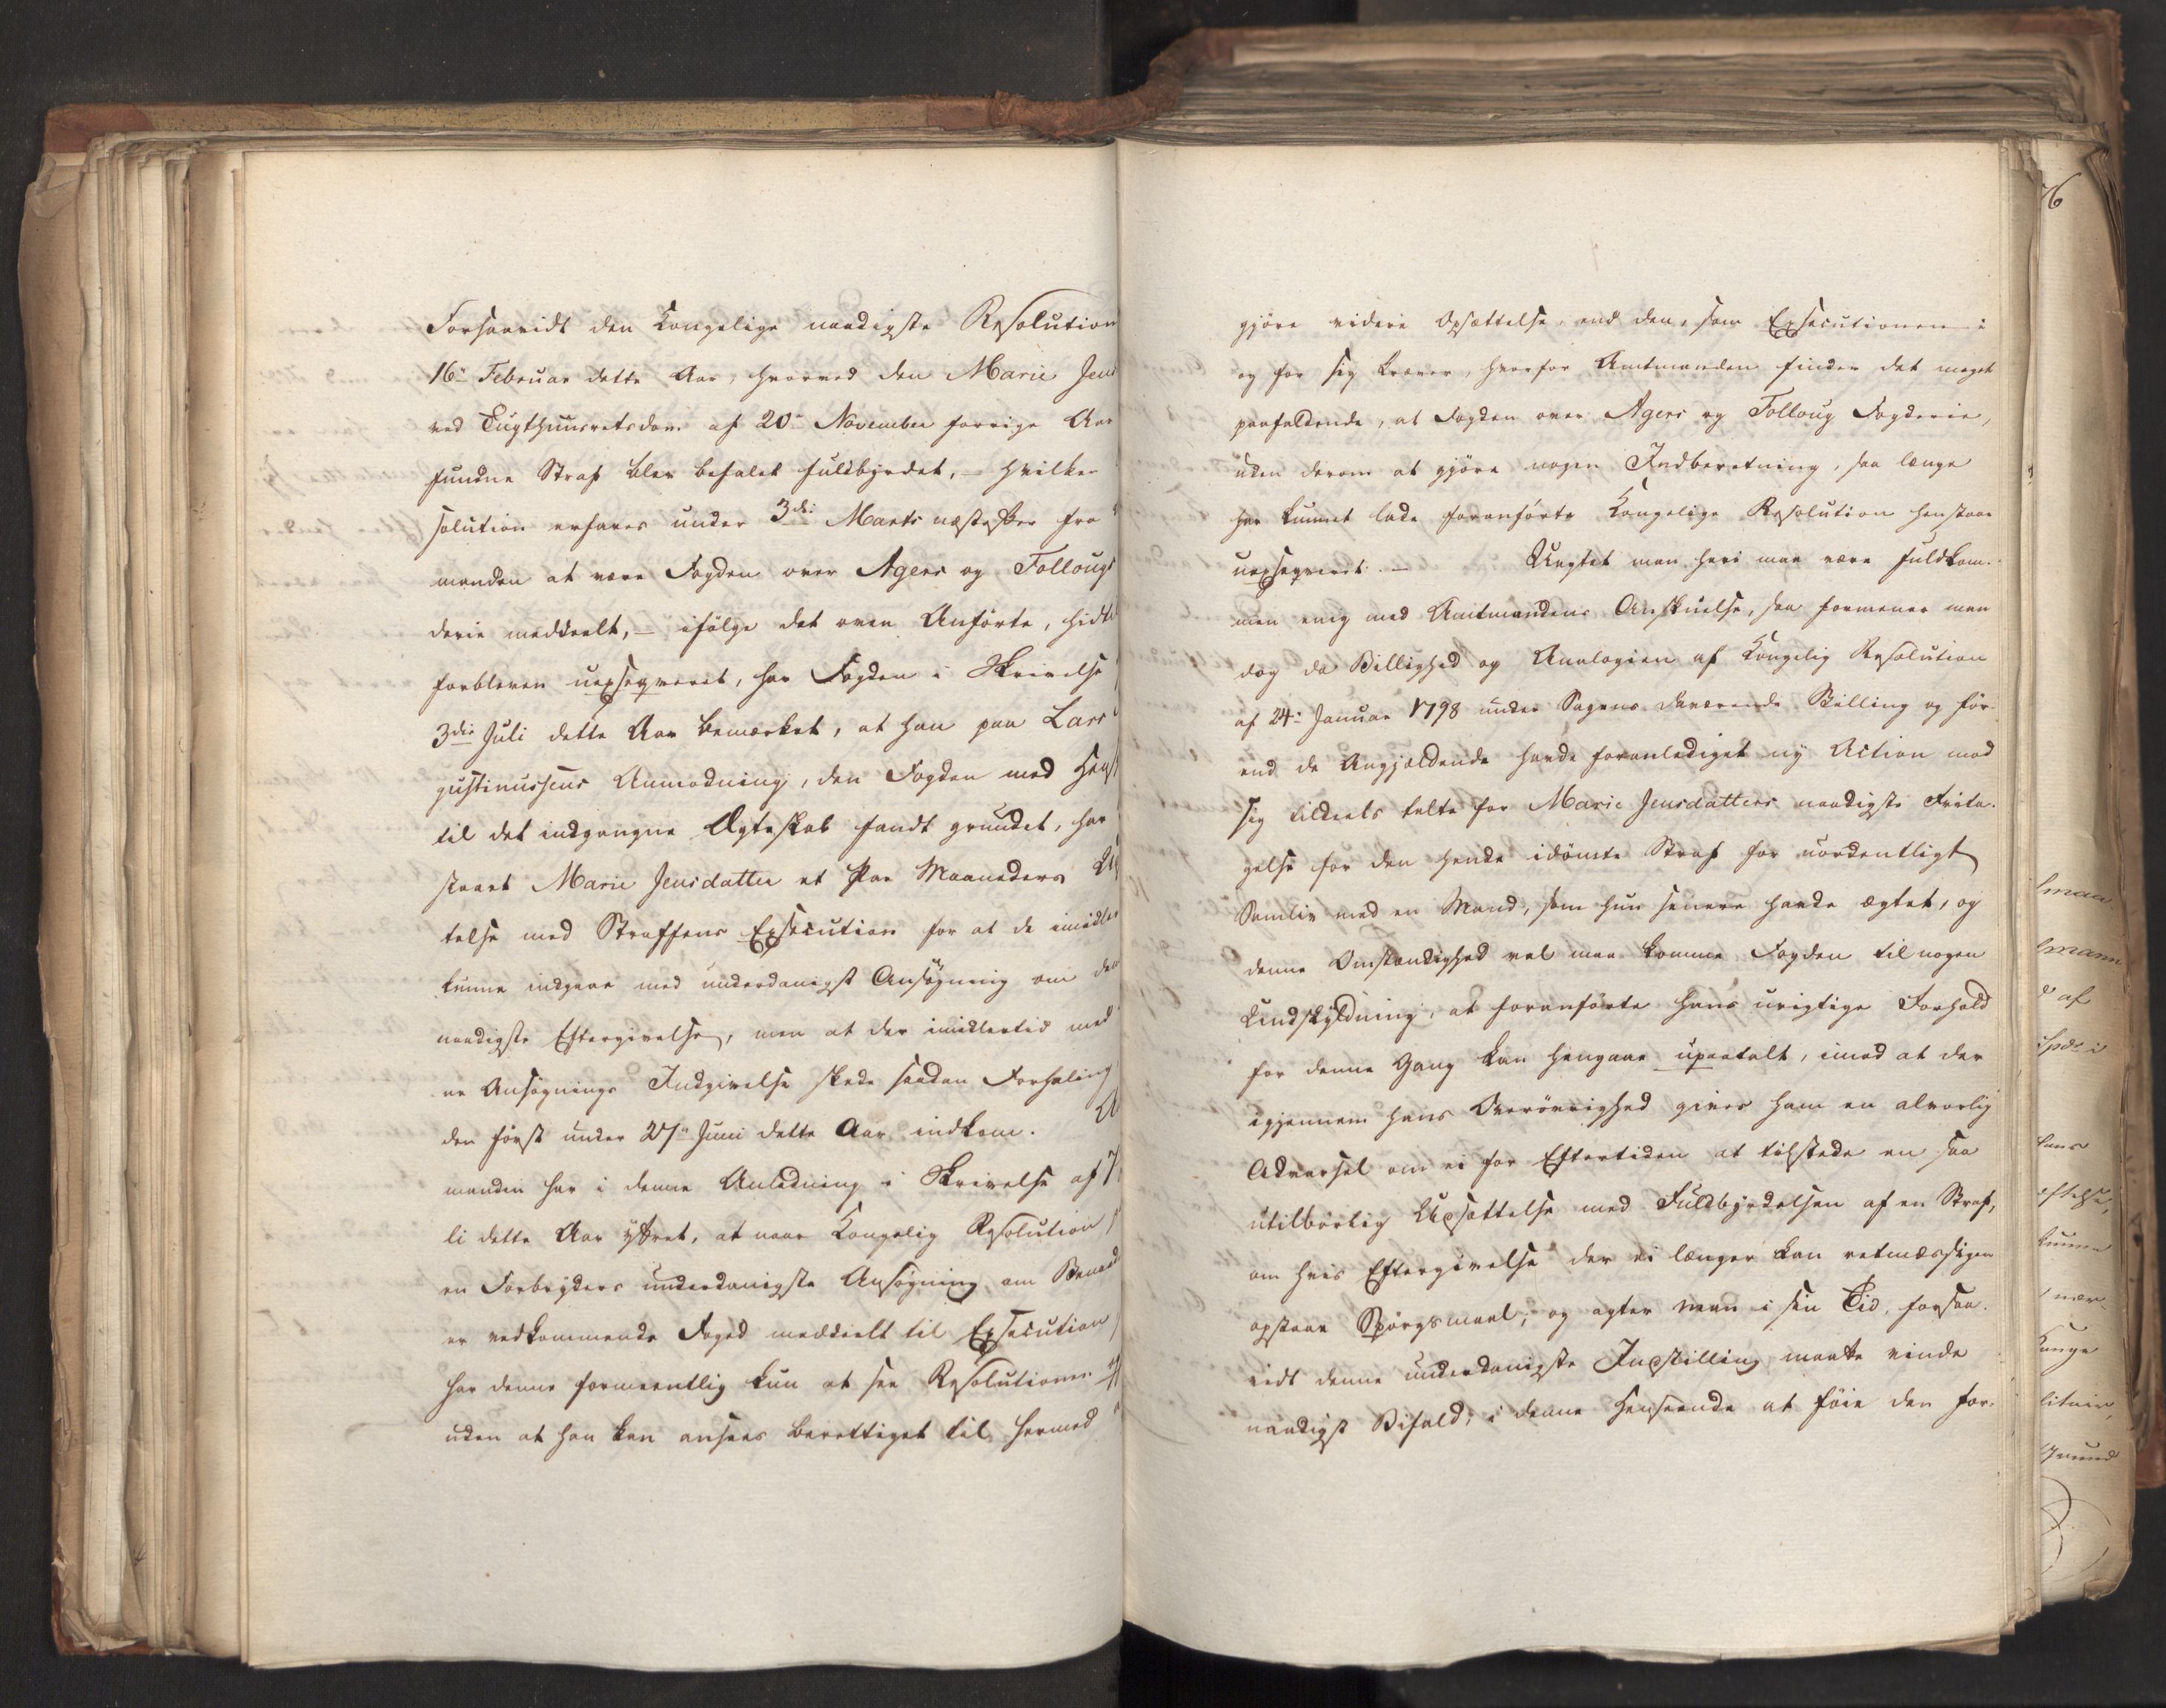 Forsaavidt den Kongelige naadigste Resolution
16de Februar dette Aar, hvorved den Marie Jens
ved Tugthuusretsdom af 20de November forrige Aar
fundne Straf blev befalet fuldbyrdet, – hvilken
solution erfares under 3die Marts næstefter fra
manden at være Fogden over Agers og Follougs
derie meddeelt, – ifølge det oven Anførte, hidtil
forbleven uexseqveret, har Fogden i Skrivelse
3die Juli dette Aar bemærket, at han paa Lars
gustinussens Anmodning, den Fogden med Hens
til det indgangne Ægteskab fandt grundet, har
staaet Marie Jensdatter et Par Maaneders Ud
telse med Straffens Exsecution for at de imidler
kunne indgaae med underdanigst Ansøgning om den
naadigste Eftergivelse, men at der imidlertid med
ne Ansøgnings Indgivelse skede saadan Forhaling
den først under 27de Juni dette Aar indkom. A
manden har i denne Anledning i Skrivelse af 7
li dette Aar yttret, at naar Kongelig Resolution
en Forbryders underdanigste Ansøgning om Benaad
er vedkommende Foged meddeelt til Exsecution
har denne formeentlig kun at see Resolutionen
uden at han kan ansees berettiget til hermed
gjøre videre Opsættelse, end den, som Exsecutionen i
og for sig kræver, hvorfor Amtmanden finder det meget
paafaldende, at Fogden over Agers og Folloug Fogderie,
uden derom at gjøre nogen Indberetning, saa længe
har kunnet lade foranførte Kongelige Resolution henstaae
uexseqveret. – Uagtet man heri maa være fuldkom-
men enig med Amtmandens Anskuelse, saa formener man
dog da Billighed og Analogien af Kongelig Resolution
af 24de Januar 1798 under Sagens daværende Stilling og før-
end de Angjeldende havde foranlediget ny Action mod
sig tildeels talte for Marie Jensdatters naadigste Frita-
gelse for den hende idømte Straf for uordentligt
Samliv med en Mand, som hun senere havde ægtet, og
denne Omstændighed vel maa komme Fogden til nogen
Undskyldning, at foranførte hans urigtige Forhold
for denne Gang kan hengaae upaatalt, imod at der
igjennem hans Overøvrighed gives ham en alvorlig
Advarsel om ei for Eftertiden at tilstede en saa
utilbørlig Udsættelse med Fuldbyrdelsen af en Straf,
om hvis Eftergivelse der ei længer kan retmæssigen
opstaae Spørgsmaal, og agter man i sin Tid, forsaa-
vidt denne underdanigste Indstilling maatte vinde
naadigst Bifald, i denne Henseende at føie den for-